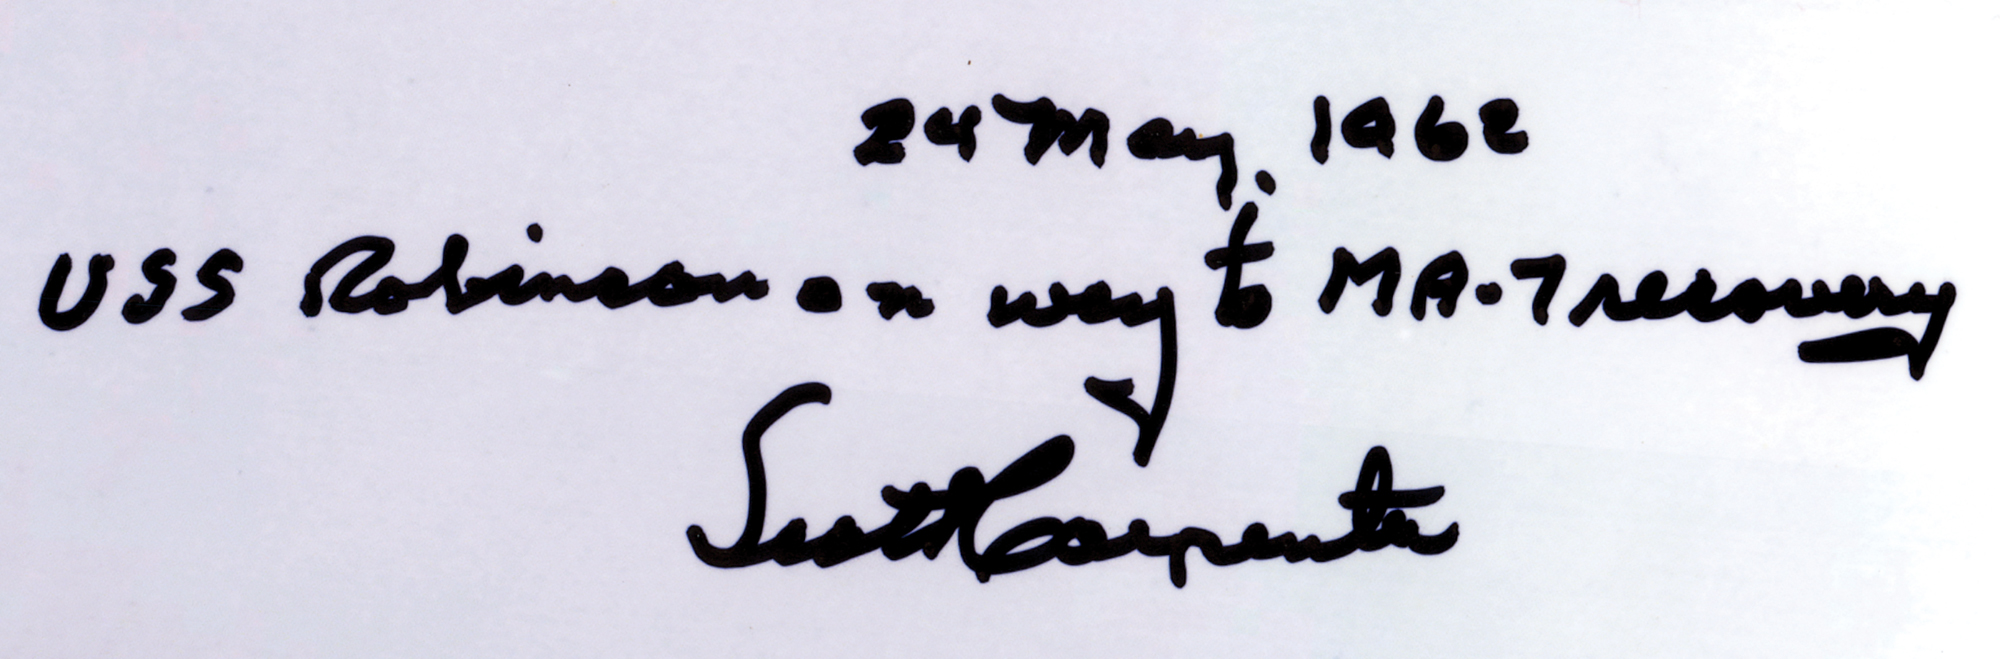 24 May. 1962
USS Robinson on way to MA-7 recovery
Scott Carpenter